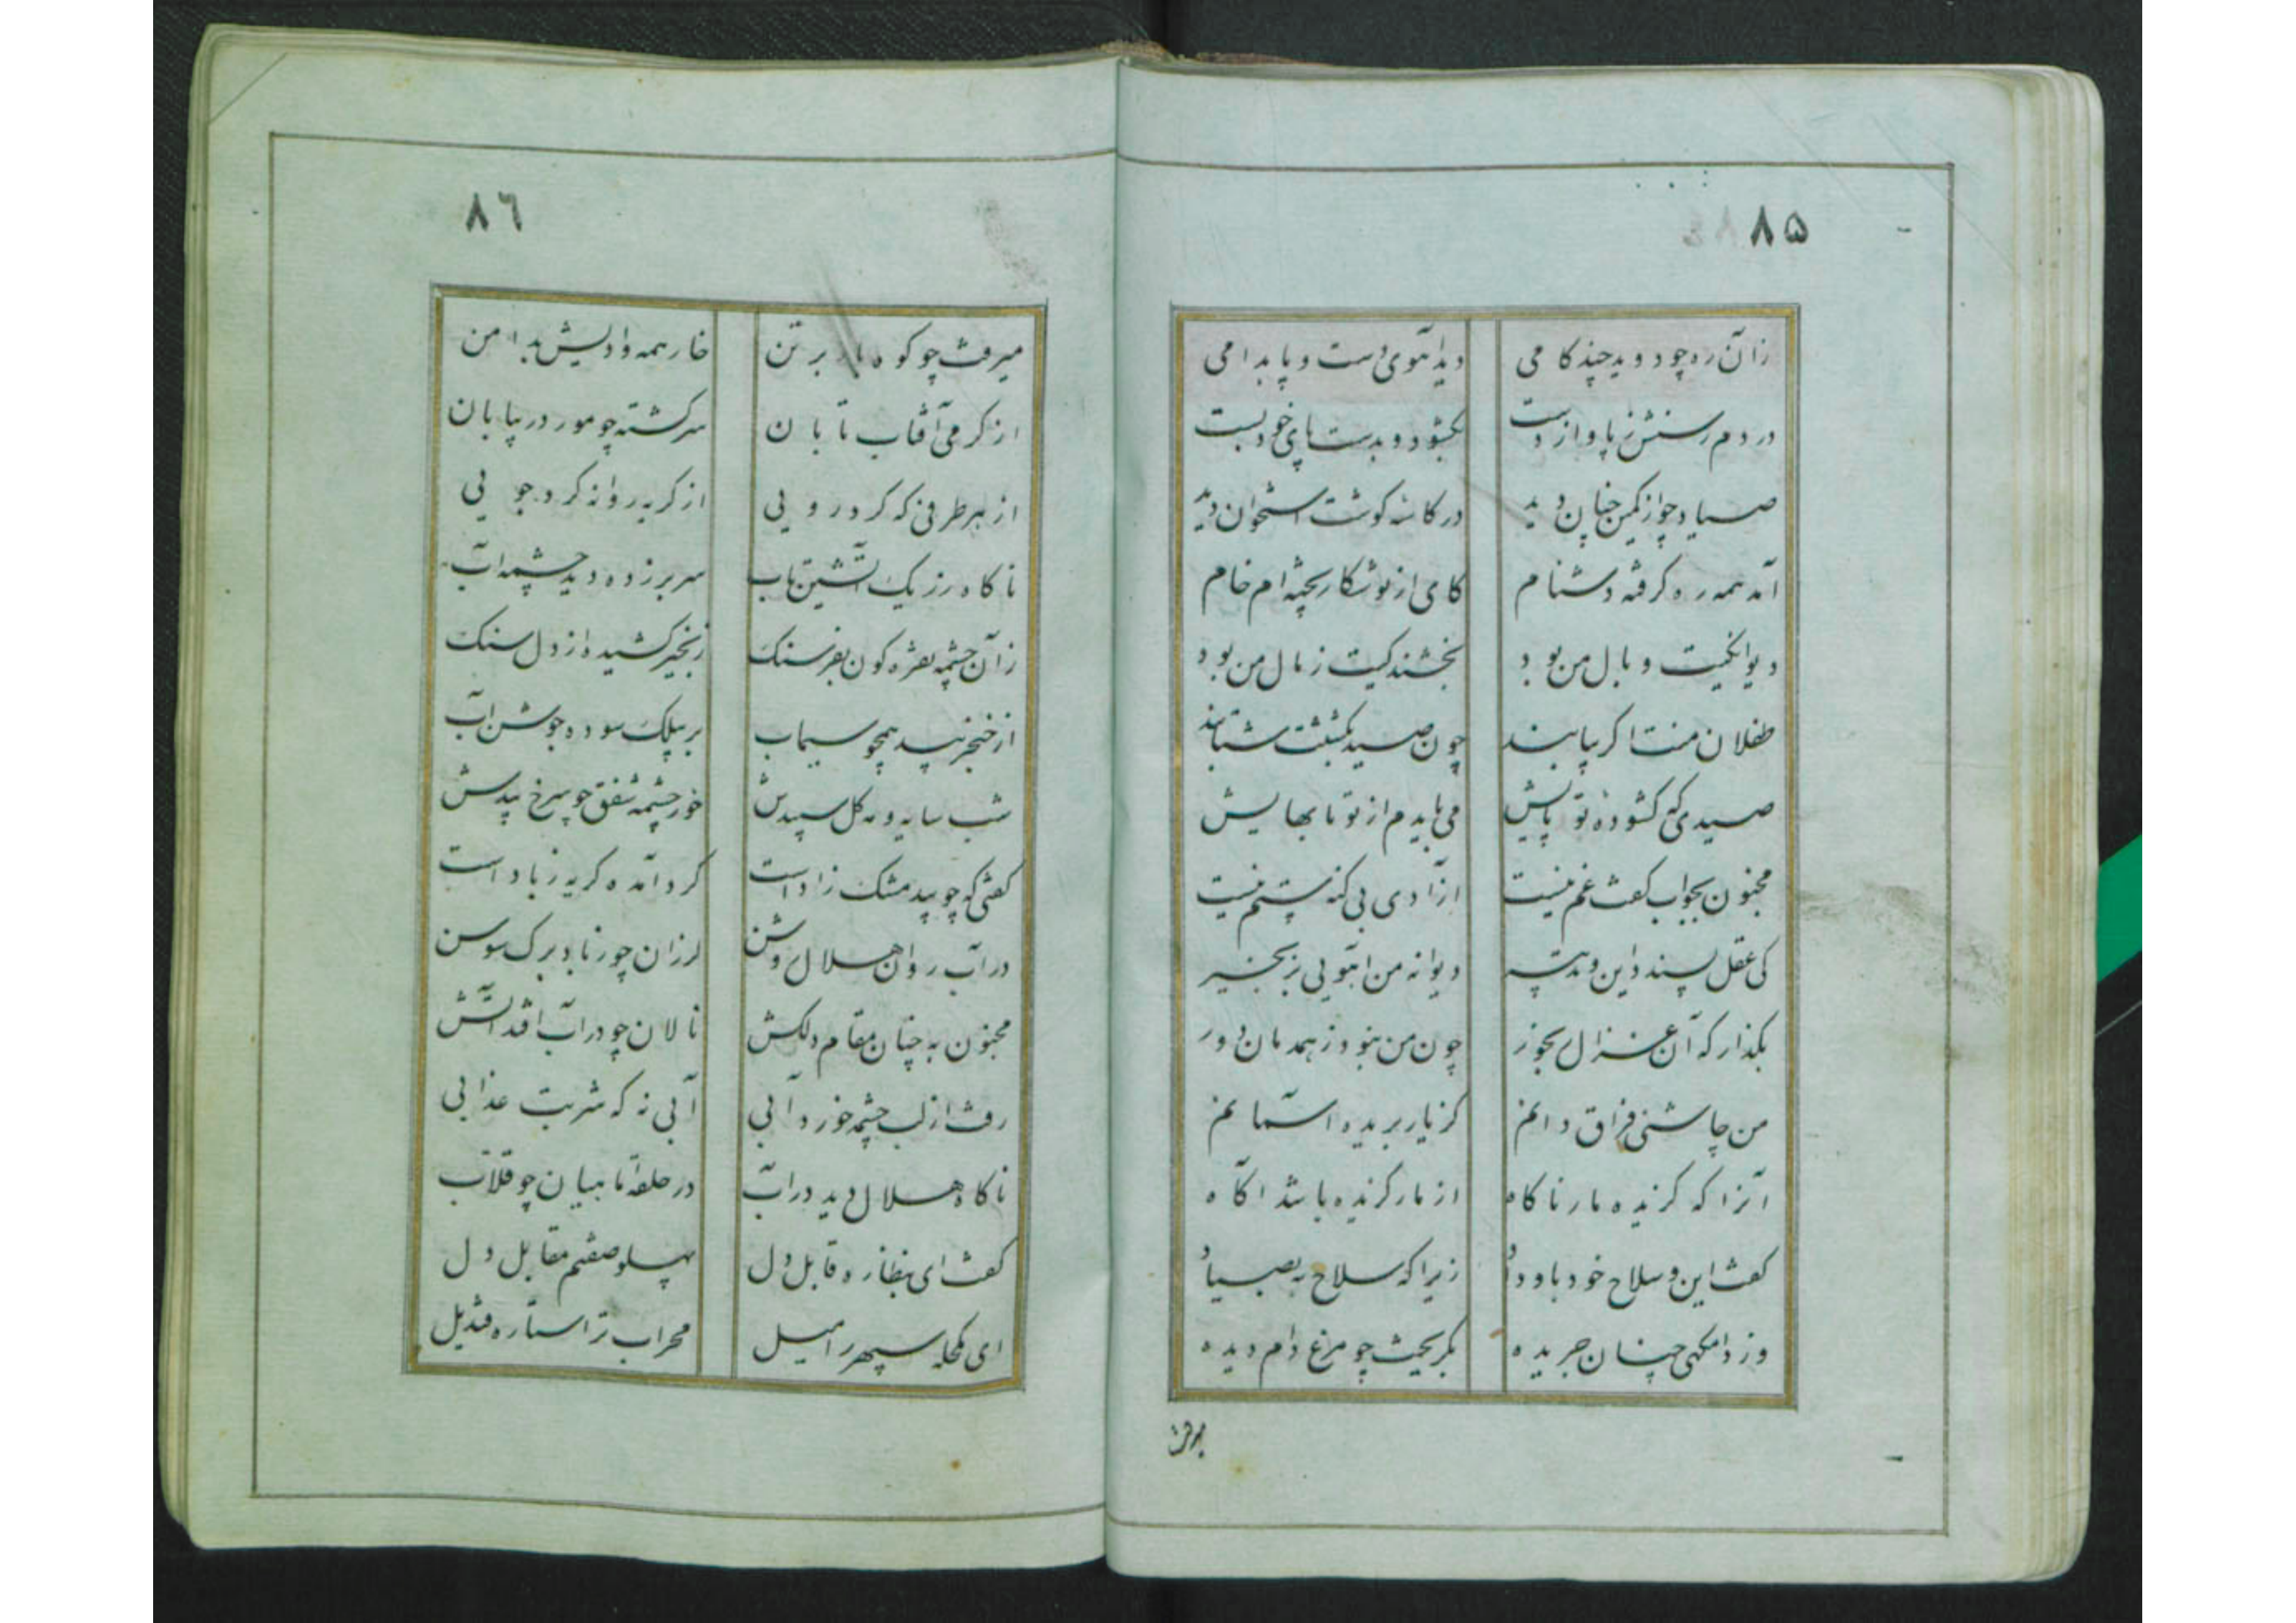 ۸۵
زان ره چو دوید چند کامی
دید آهوی دست و پا بدامی
در دم رسنش ز پا و از دست
بکشود و بدست پای خود بست
صیاد چو از کمین چنان دید
در کاسه کوشت استخوان دید
آمد همه ره کرفته دشنام
کای از تو شکار پخته ام خام
دیوانکیت وبال من بود
بخشندکیت ز مال من بود
طفلان منت اکر بیابند
چون صید بکشتنت شتابند
صیدی که کشوده تو پایش
می بایدم از تو تا بهایش
مجنون بجواب کفت غم نیست
ازادی بی کنه ستم نیست
کی عقل پسندد این
دیوانه من آهویی بزنجیر
بکذار که آن غزال
چون من نبود ز همدمان دور
من چاشنی فراق دانم
کز یار بریده
آنرا که کزیده مار ناکاه
از مار کزیده باشد آکاه
کفت این و سلاح خود باو داد
زیرا که سلاح به بصیاد
وز دامکهی چنان جریده
بکریخت چو مرغ دام دیده
میرفت
۸٦
میرفت چو کوه بر تن
خار همه وادیش بدامن
از کرمی آفتاب تابان
سرکشته چو مور در بیابان
از هر طرفی که کرد رویی
از کریه روانه کرد جویی
ناکاه ز ریک آتشین تاب
سر بر زده دید چشمه آب
زان چشمه نقره کون بفرسنک
زنجیر کشیده از دل سنک
از خنجر بید همچو سیماب
بر بیلک سوده جوشن آب
شب سایه و مه کل سپیدش
خور چشمه شفق چو سرخ بیدش
کفتی که چو بید مشک زاد است
کرد آمده کربه زباد است
در آب روان هلال روشن
لرزان چو ز باد برک سوسن
مجنون به چنان مقام دلکش
نالان چو در آب افتد آتش
رفت از لب چشمه خورد آبی
آبی نه که شربت عذابی
ناکاه هلال دید در آب
در حلقه ماهیان چو قلاب
کفت ای بنظاره قابل دل
پهلو صفتم مقابل دل
ای مکحله سپهر را میل
محراب ترا ستاره قندیل